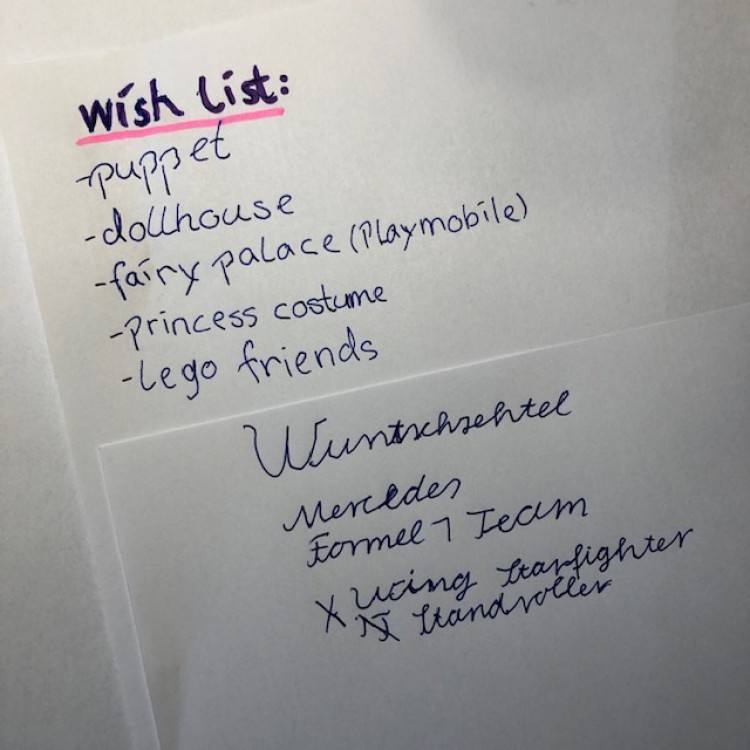 wish list:
-puppet
-dollhouse
-fairy palace (Playmobile)
-princess costume
-Lego friends
Wuntschzehtel
Mercedes
Formel 1 Team
X Wing Starfighter
Standroller